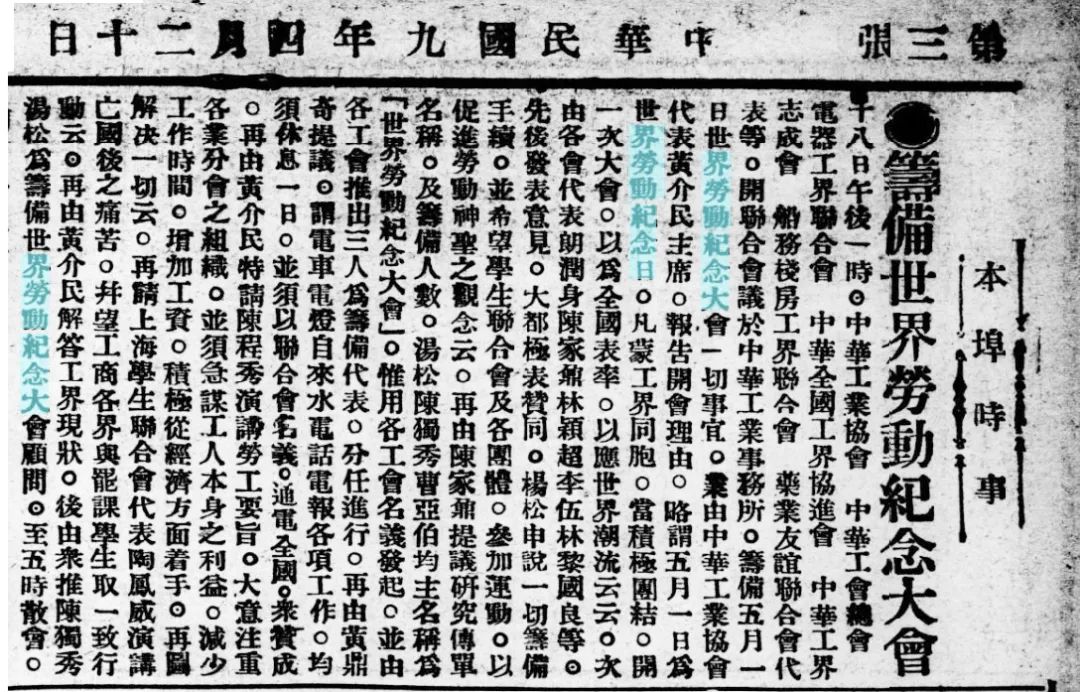 第三張
中華民國九年四月二十日
本埠時事
●籌備世界勞動紀念大會
十八日午後一時。中華工業協會　中華工會總會
電器工界聯合會　中華全國工界協進會　中華工界
志成會　船務棧房工界聯合會　藥業友誼聯合會代
表等。開聯合會議於中華工業事務所。籌備五月一
日世界勞動紀念大會一切事宜。業由中華工業協會
代表黃介民主席。報告開會理由。略謂五月一日為
世界勞動紀念日。凡蒙工界同胞。當積極團結。開
一次大會。以為全國表率。以應世界潮流云云。次
由各會代表朗潤身陳家鼐林穎超李伍林黎國良等。
先後發表意見。大都極表贊同。楊松申說一切籌備
手續。並希望學生聯合會及各團體。參加運動。以
促進勞動神聖之觀念云。再由陳家鼐提議研究傳單
名稱。及籌備人數。湯松陳獨秀曹亞伯均主名稱為
「世界勞動紀念大會」。惟用各工會名義發起。並由
各工會推出三人為籌備代表。分任進行。再由黃鼎
奇提議。謂電車電燈自來水電話電報各項工作。均
須休息一日。並須以聯合會名義。通電全國。衆贊成
。再由黃介民特請陳程秀演講勞工要旨。大意注重
各業分會之組織。並須急謀工人本身之利益。減少
工作時間。增加工資。積極從經濟方面着手。再圖
解决一切云。再請上海學生聯合會代表陶鳳威演講
亡國後之痛苦。幷望工商各界與罷課學生取一致行
動云。再由黃介民解答工界現狀。後由衆推陳獨秀
湯松為籌備世界勞動紀念大會顧問。至五時散會。